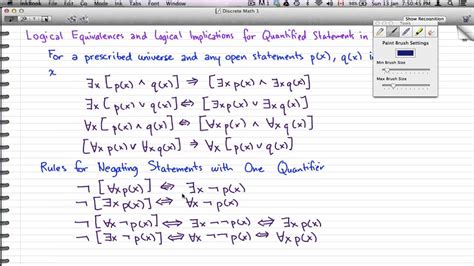 InkBook File Edit Sun 13 Jan 7:50:45 PM
Discrete Math 1
Show Recognition
Paint Brush Settings
Min Brush Size
Max Brush Size
Logical Equivalences and Logical Implications for Quantified Statement in
For a prescribed universe and any open statements p(x), q(x) in
x
∃x [p(x) ∧ q(x)] ⇒ [∃x p(x) ∧ ∃x q(x)]
∃x [p(x) ∨ q(x)] ⇔ [∃x p(x) ∨ ∃x q(x)]
∀x [p(x) ∧ q(x)] ⇔ [∀x p(x) ∧ ∀x q(x)]
∀x [p(x) ∨ q(x)] ⇐ [∀x p(x) ∨ ∀x q(x)]
Rules for Negating Statements with One Quantifier
¬ [∀x p(x)] ⇔ ∃x ¬ p(x)
¬ [∃x p(x)] ⇔ ∀x ¬ p(x)
¬ [∀x ¬ p(x)] ⇔ ∃x ¬¬ p(x) ⇔ ∃x p(x)
¬ [∃x ¬ p(x)] ⇔ ∀x ¬¬ p(x) ⇔ ∀x p(x)